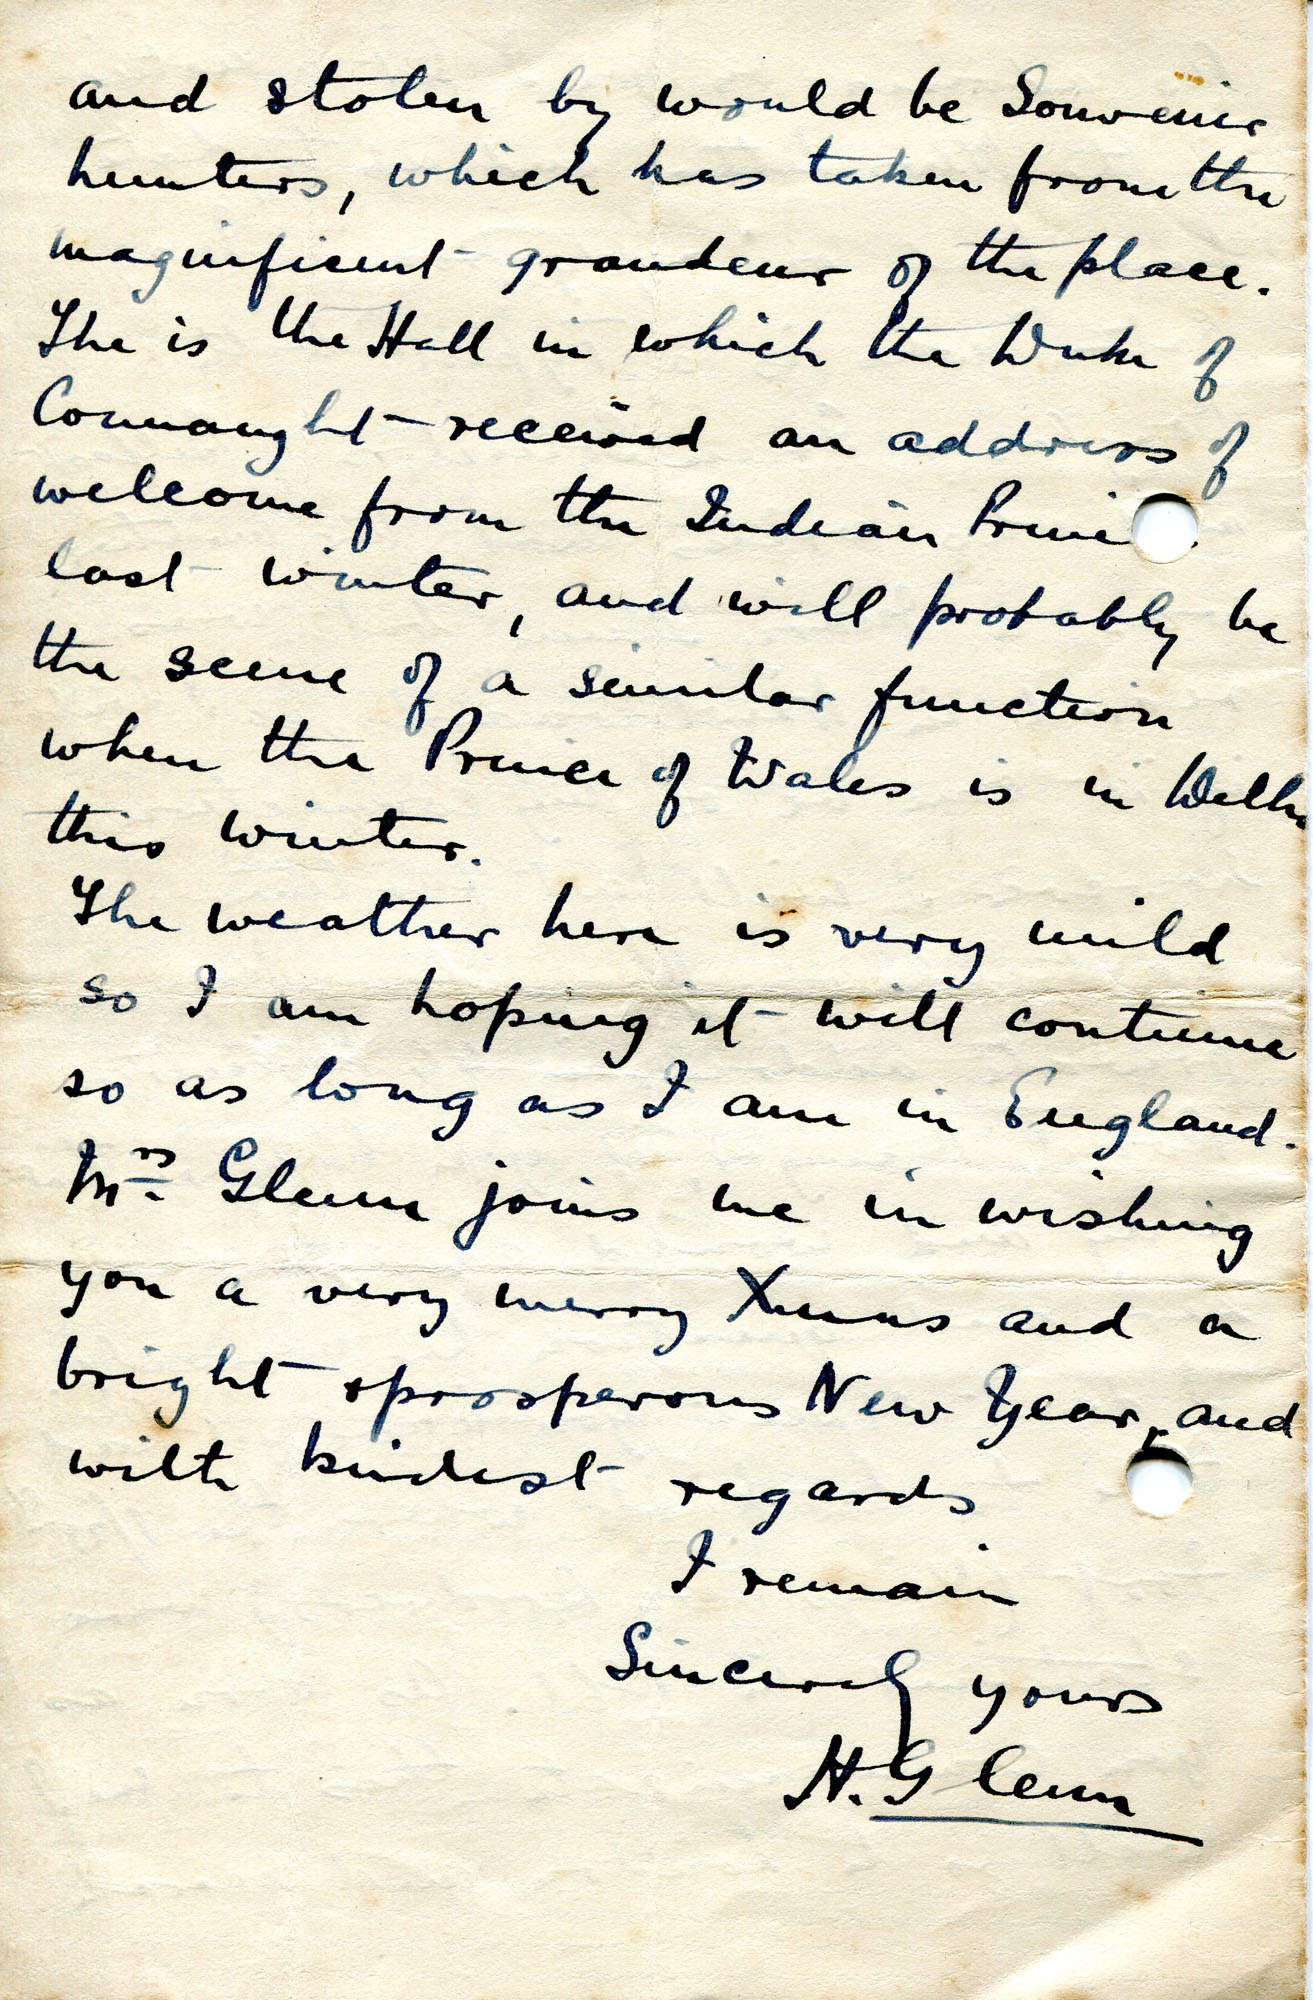 and stolen by would be Souvenir
hunters, which has taken from the
magnificent grandeur of the place.
The is the Hall in which the Duke of
Connaught received an address of
welcome from the Indian
last winter, and will probably be
the scene of a similar function
when the Prince of Wales is in Delhi
this winter.
The weather here is very mild
so I am hoping it will continue
so as long as I am in England.
Mrs Glenn joins me in wishing
you a very merry Xmas and a
bright & prosperous New Year, and
with kindest regards
I remain
Sincerely yours
H. Glenn